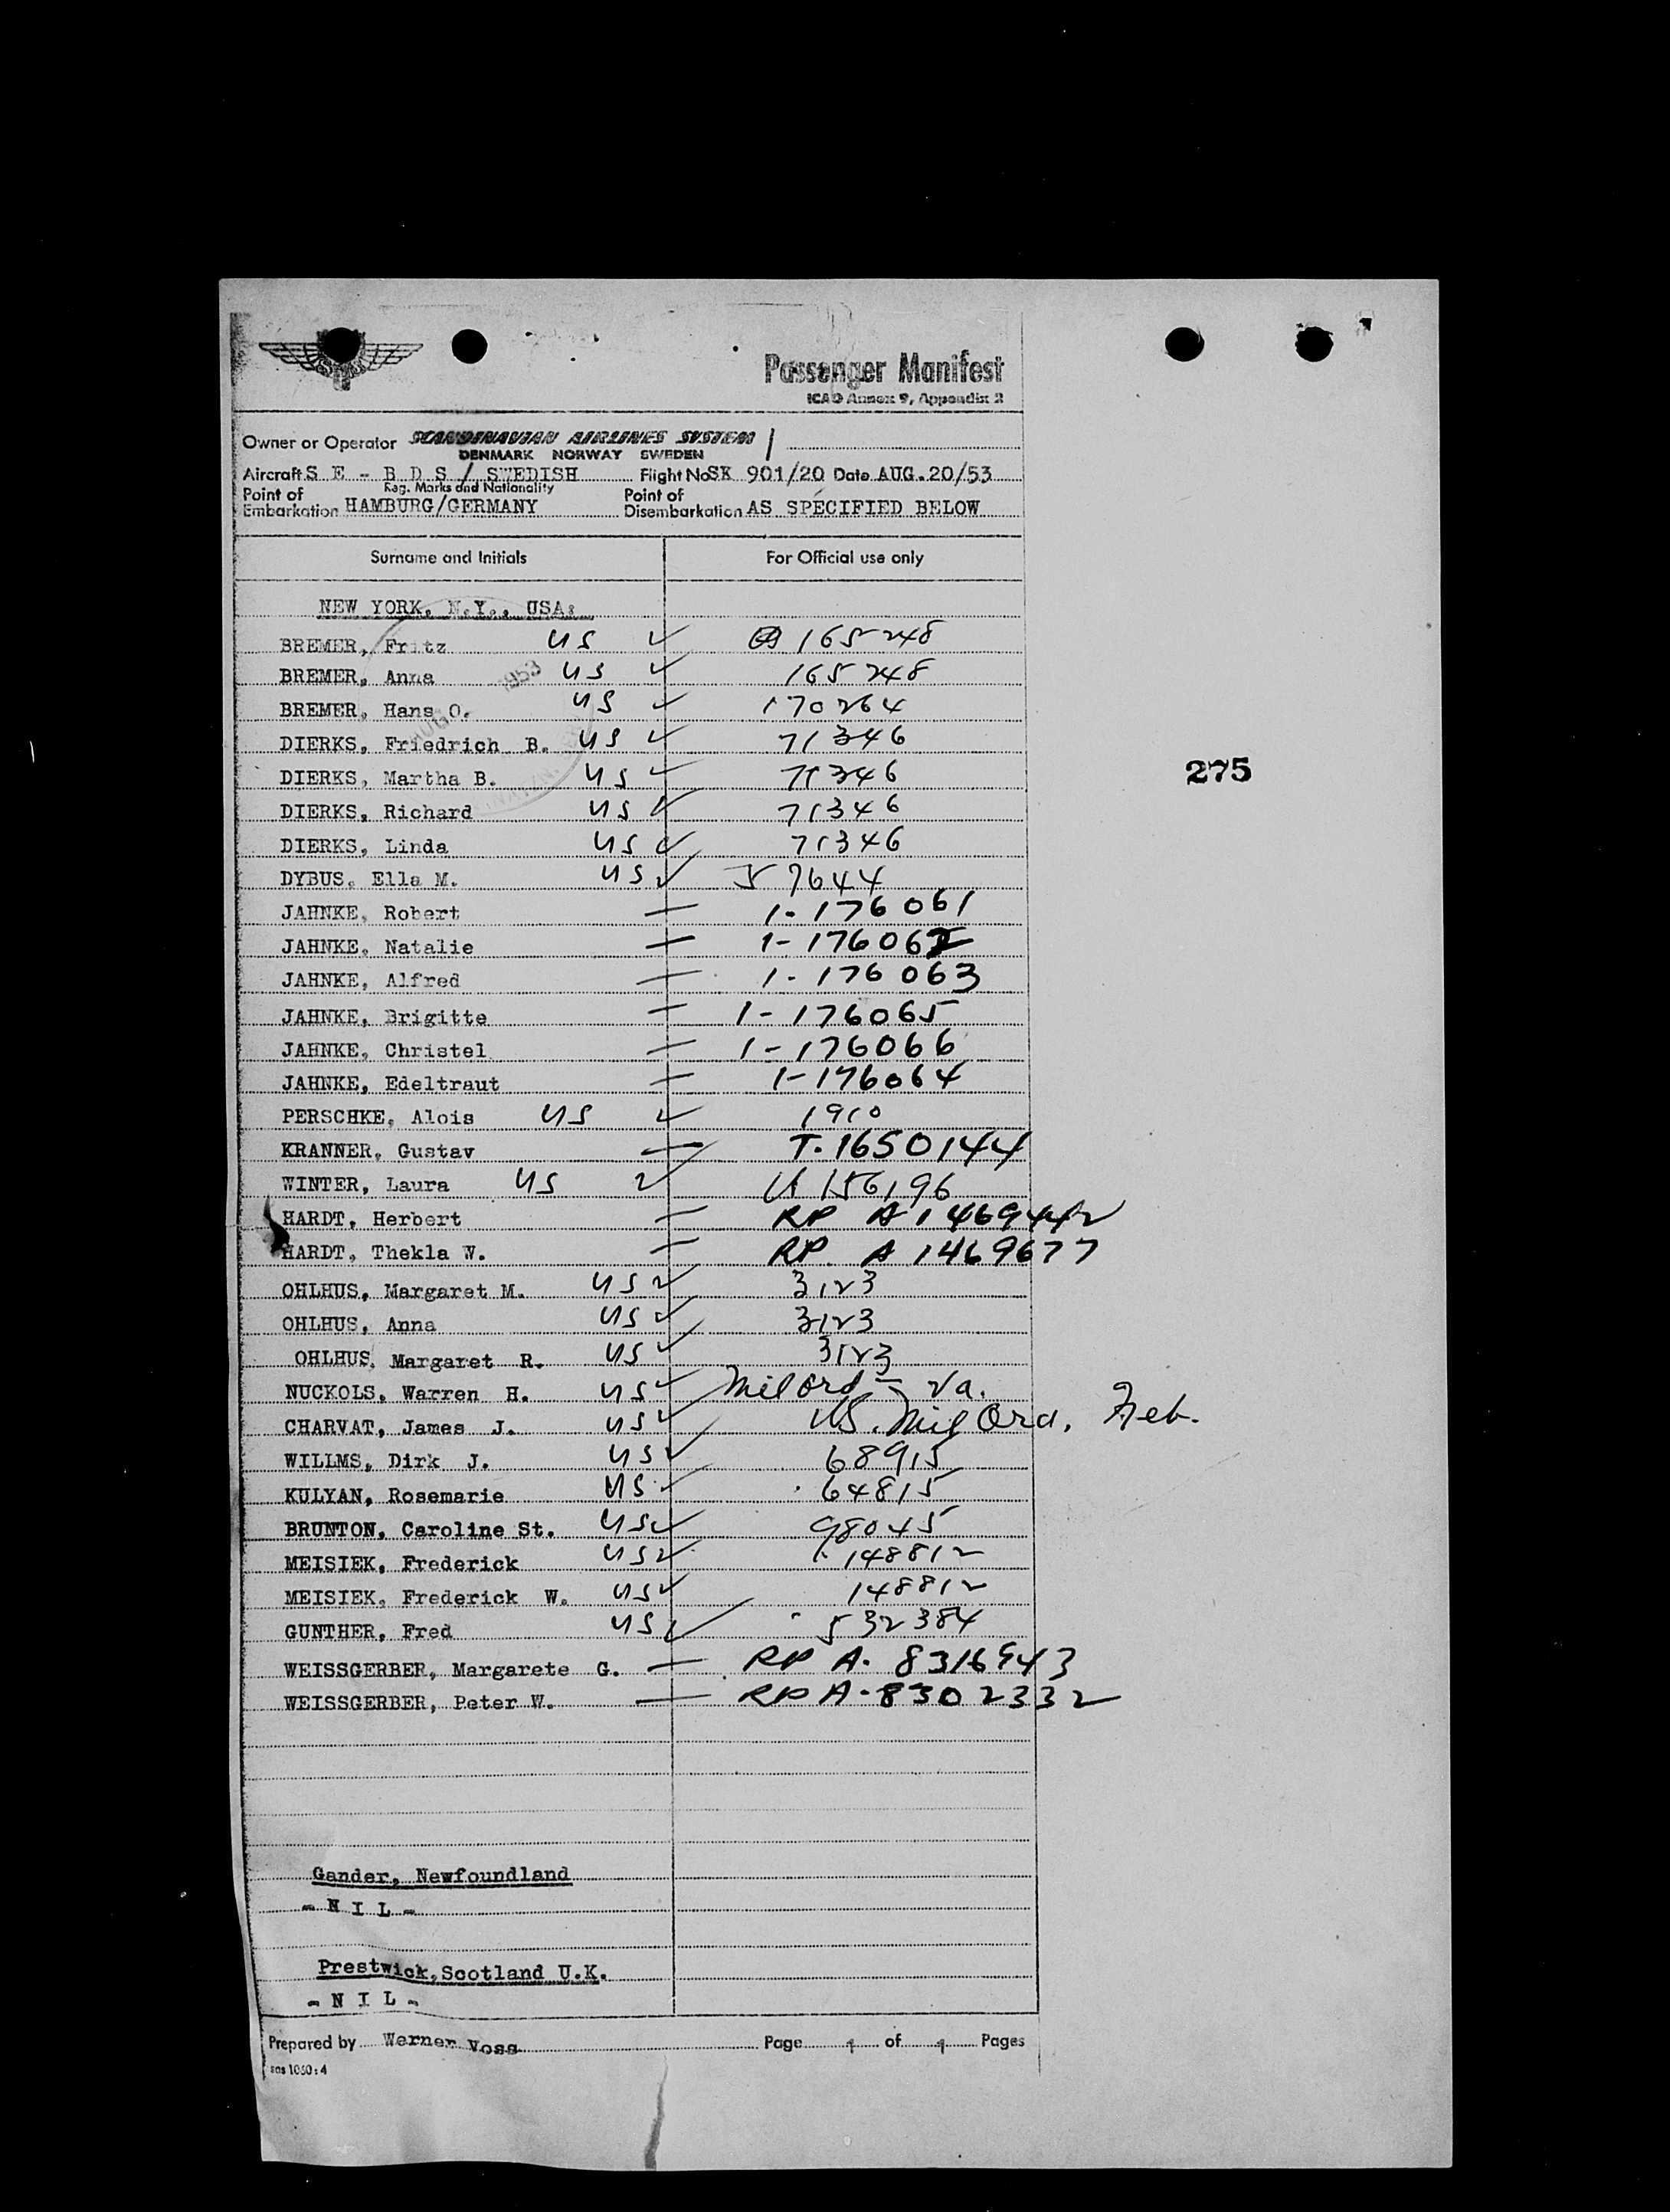 Passenger Manifest
ICAO Annex 9, Appendix 2
Owner or Operator SCANDINAVIAN AIRLINES SYSTEM
DENMARK NORWAY SWEDEN
Aircraft S E - B D S / SWEDISH Flight No SK 901/20 Date AUG.20/53
Reg. Marks and Nationality
Point of Embarkation HAMBURG/GERMANY Point of Disembarkation AS SPECIFIED BELOW
Surname and Initials For Official use only
NEW YORK, N.Y., USA:
BREMER, Fritz US ✓ 165248
BREMER, Anna US ✓ 165248
1953
BREMER, Hans O. US ✓ 170264
DIERKS, Friedrich B. US ✓ 71346
DIERKS, Martha B. US ✓ 71346
275
DIERKS, Richard US ✓ 71346
DIERKS, Linda US ✓ 71346
DYBUS, Ella M. US ✓ 57644
JAHNKE, Robert — 1-176061
JAHNKE, Natalie — 1-176062
JAHNKE, Alfred — 1-176063
JAHNKE, Brigitte — 1-176065
JAHNKE, Christel — 1-176066
JAHNKE, Edeltraut — 1-176064
PERSCHKE, Alois US ✓ 1910
KRANNER, Gustav — T-1650144
WINTER, Laura US ✓ 156196
HARDT, Herbert — RP A1469442
HARDT, Thekla W. — RP. A1469677
OHLHUS, Margaret M. US ✓ 3123
OHLHUS, Anna US ✓ 3123
OHLHUS, Margaret R. US ✓ 3123
NUCKOLS, Warren H. US ✓ Mil Ord - Va.
CHARVAT, James J. US ✓ US. Mil Ord, Neb.
WILLMS, Dirk J. US ✓ 68915
KULYAN, Rosemarie US ✓ 64815
BRUNTON, Caroline St. US ✓ 98045
MEISIEK, Frederick US ✓ 148812
MEISIEK, Frederick W. US ✓ 148812
GUNTHER, Fred US ✓ 532384
WEISSGERBER, Margarete G. — RP A-8316943
WEISSGERBER, Peter W. — RP A-8302332
Gander, Newfoundland
- N I L -
Prestwick, Scotland U.K.
- N I L -
Prepared by Werner Voss Page 1 of 1 Pages
sas 1030:4